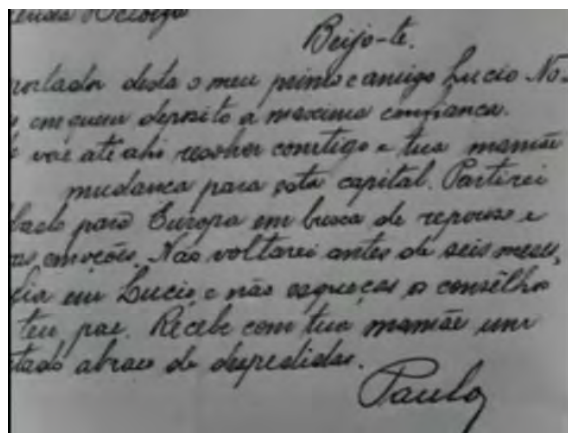 Beijo-te.
portador desta o meu primo e amigo Lucio No-
em quem deposito a maxima confiança.
vae até ahi resolver comtigo e tua mamãe
mudança para esta capital. Partirei
para Europa em busca de repouso e
emoções. Não voltarei antes de seis meses,
em Lucio, e não esqueças o conselho
teu pae. Recebe com tua mamãe um
abraço de despedidas.
Paulo